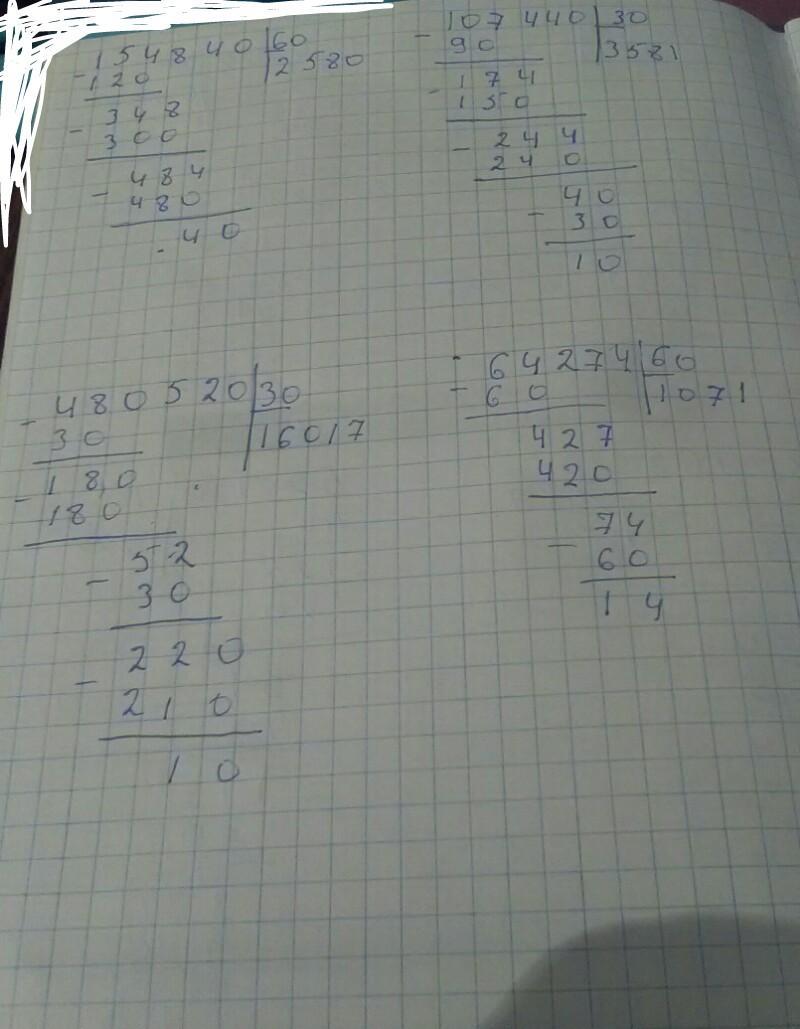 154840 | 60
- 120 | 2580
348
- 300
484
- 480
40
107440 | 30
- 90 | 3581
174
- 150
- 244
240
40
- 30
10
480520 | 30
- 30 | 16017
180
- 180
52
- 30
220
- 210
10
64274 | 60
- 60 | 1071
427
420
74
- 60
14